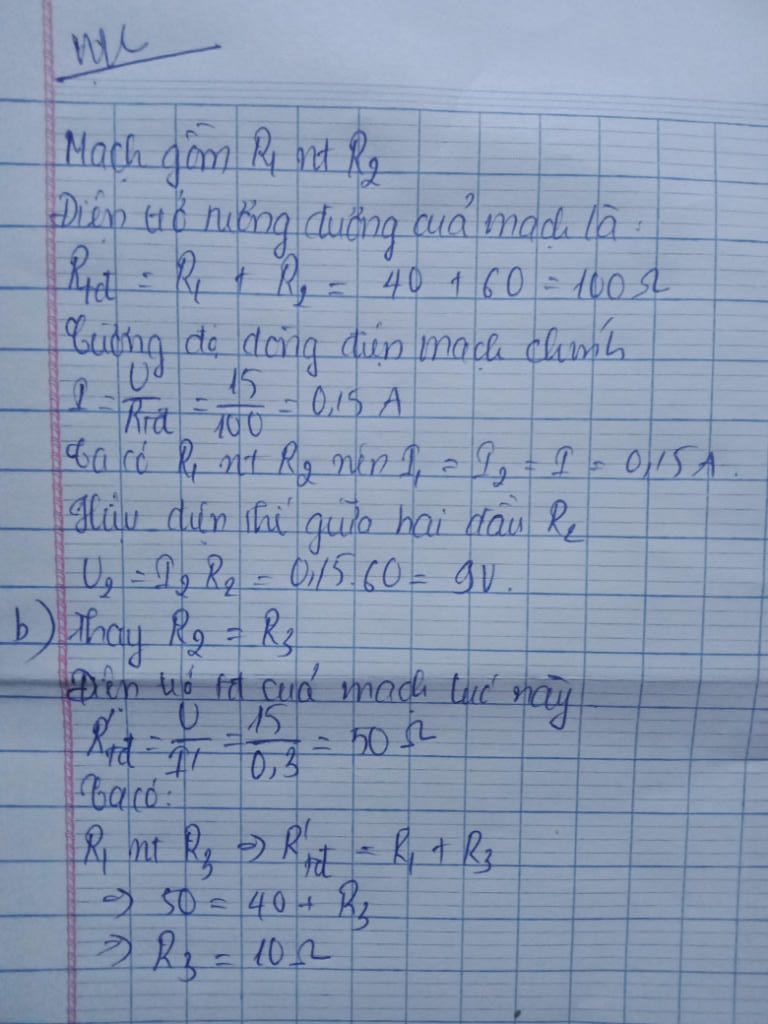 Mạch gồm R₁ nt R₂
Điện trở tương đương của mạch là:
Rtđ = R₁ + R₂ = 40 + 60 = 100Ω
Cường độ dòng điện mạch chính
I = U/Rtđ = 15/100 = 0,15 A
Ta có R₁ nt R₂ nên I₁ = I₂ = I = 0,15A.
Hiệu điện thế giữa hai đầu R₂
U₂ = I₂ R₂ = 0,15.60 = 9V.
b) Thay R₂ = R₃
Điện trở tđ của mạch lúc này
R'tđ = U/I' = 15/0,3 = 50 Ω
Ta có:
R₁ nt R₃ => R'tđ = R₁ + R₃
=> 50 = 40 + R₃
=> R₃ = 10Ω